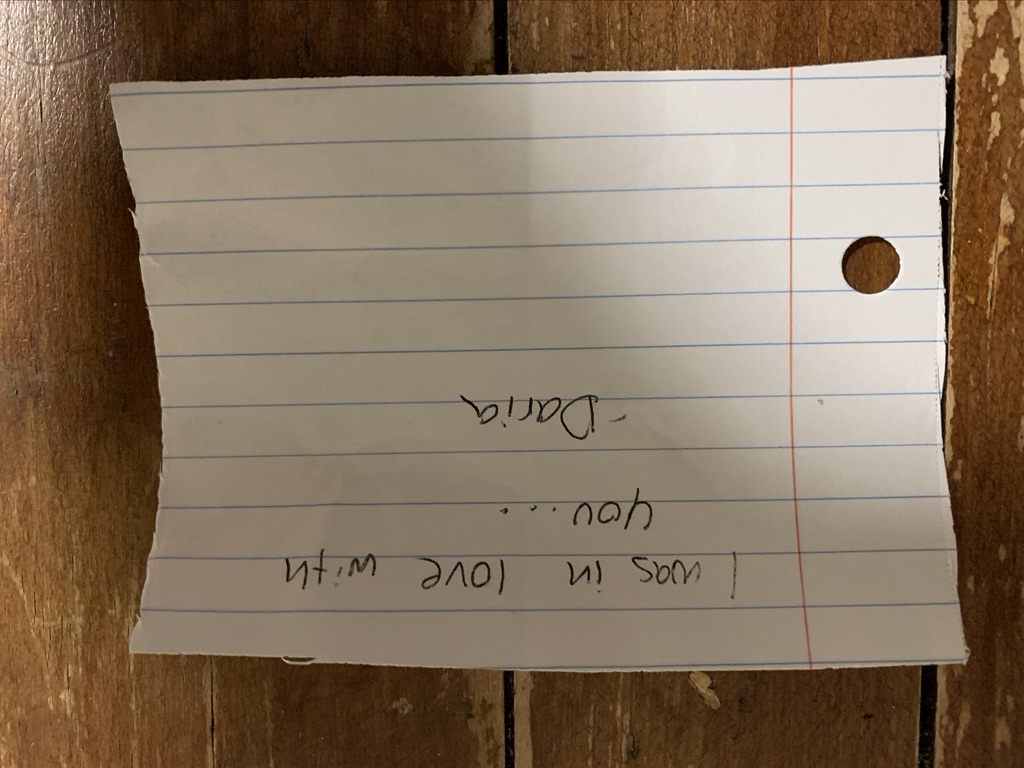 I was in love with
you....
-Daria